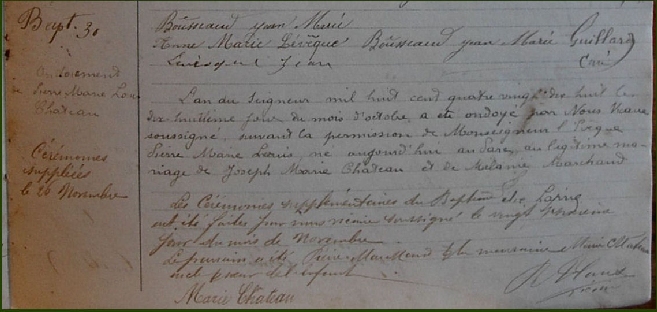 Bapt. 30
Bousseaud jean Marie
Anne Marie Lévêque Bousseaud jean Marie Guillard
Jean Curé
Ondoiement
de Pierre Marie Louis
Chateau
Cérémonies
suppléées
le 20 Novembre
L'an du Seigneur mil huit cent quatre vingt dix huit le
dix huitième jour du mois d'octobre, a été ondoyé par Nous Vicaire
soussigné, suivant la permission de Monseigneur l'Evêque
Pierre Marie Louis, né aujourd'hui au du légitime ma-
riage de Joseph Marie Chateau et de Mélanie Marchand
Les Cérémonies supplémentaires du Baptême
ont été faites par nous vicaire soussigné le vingt
jour du mois de Novembre
Le parrain a été Pierre et la marraine Marie Chateau
de l'enfant
Marie Chateau